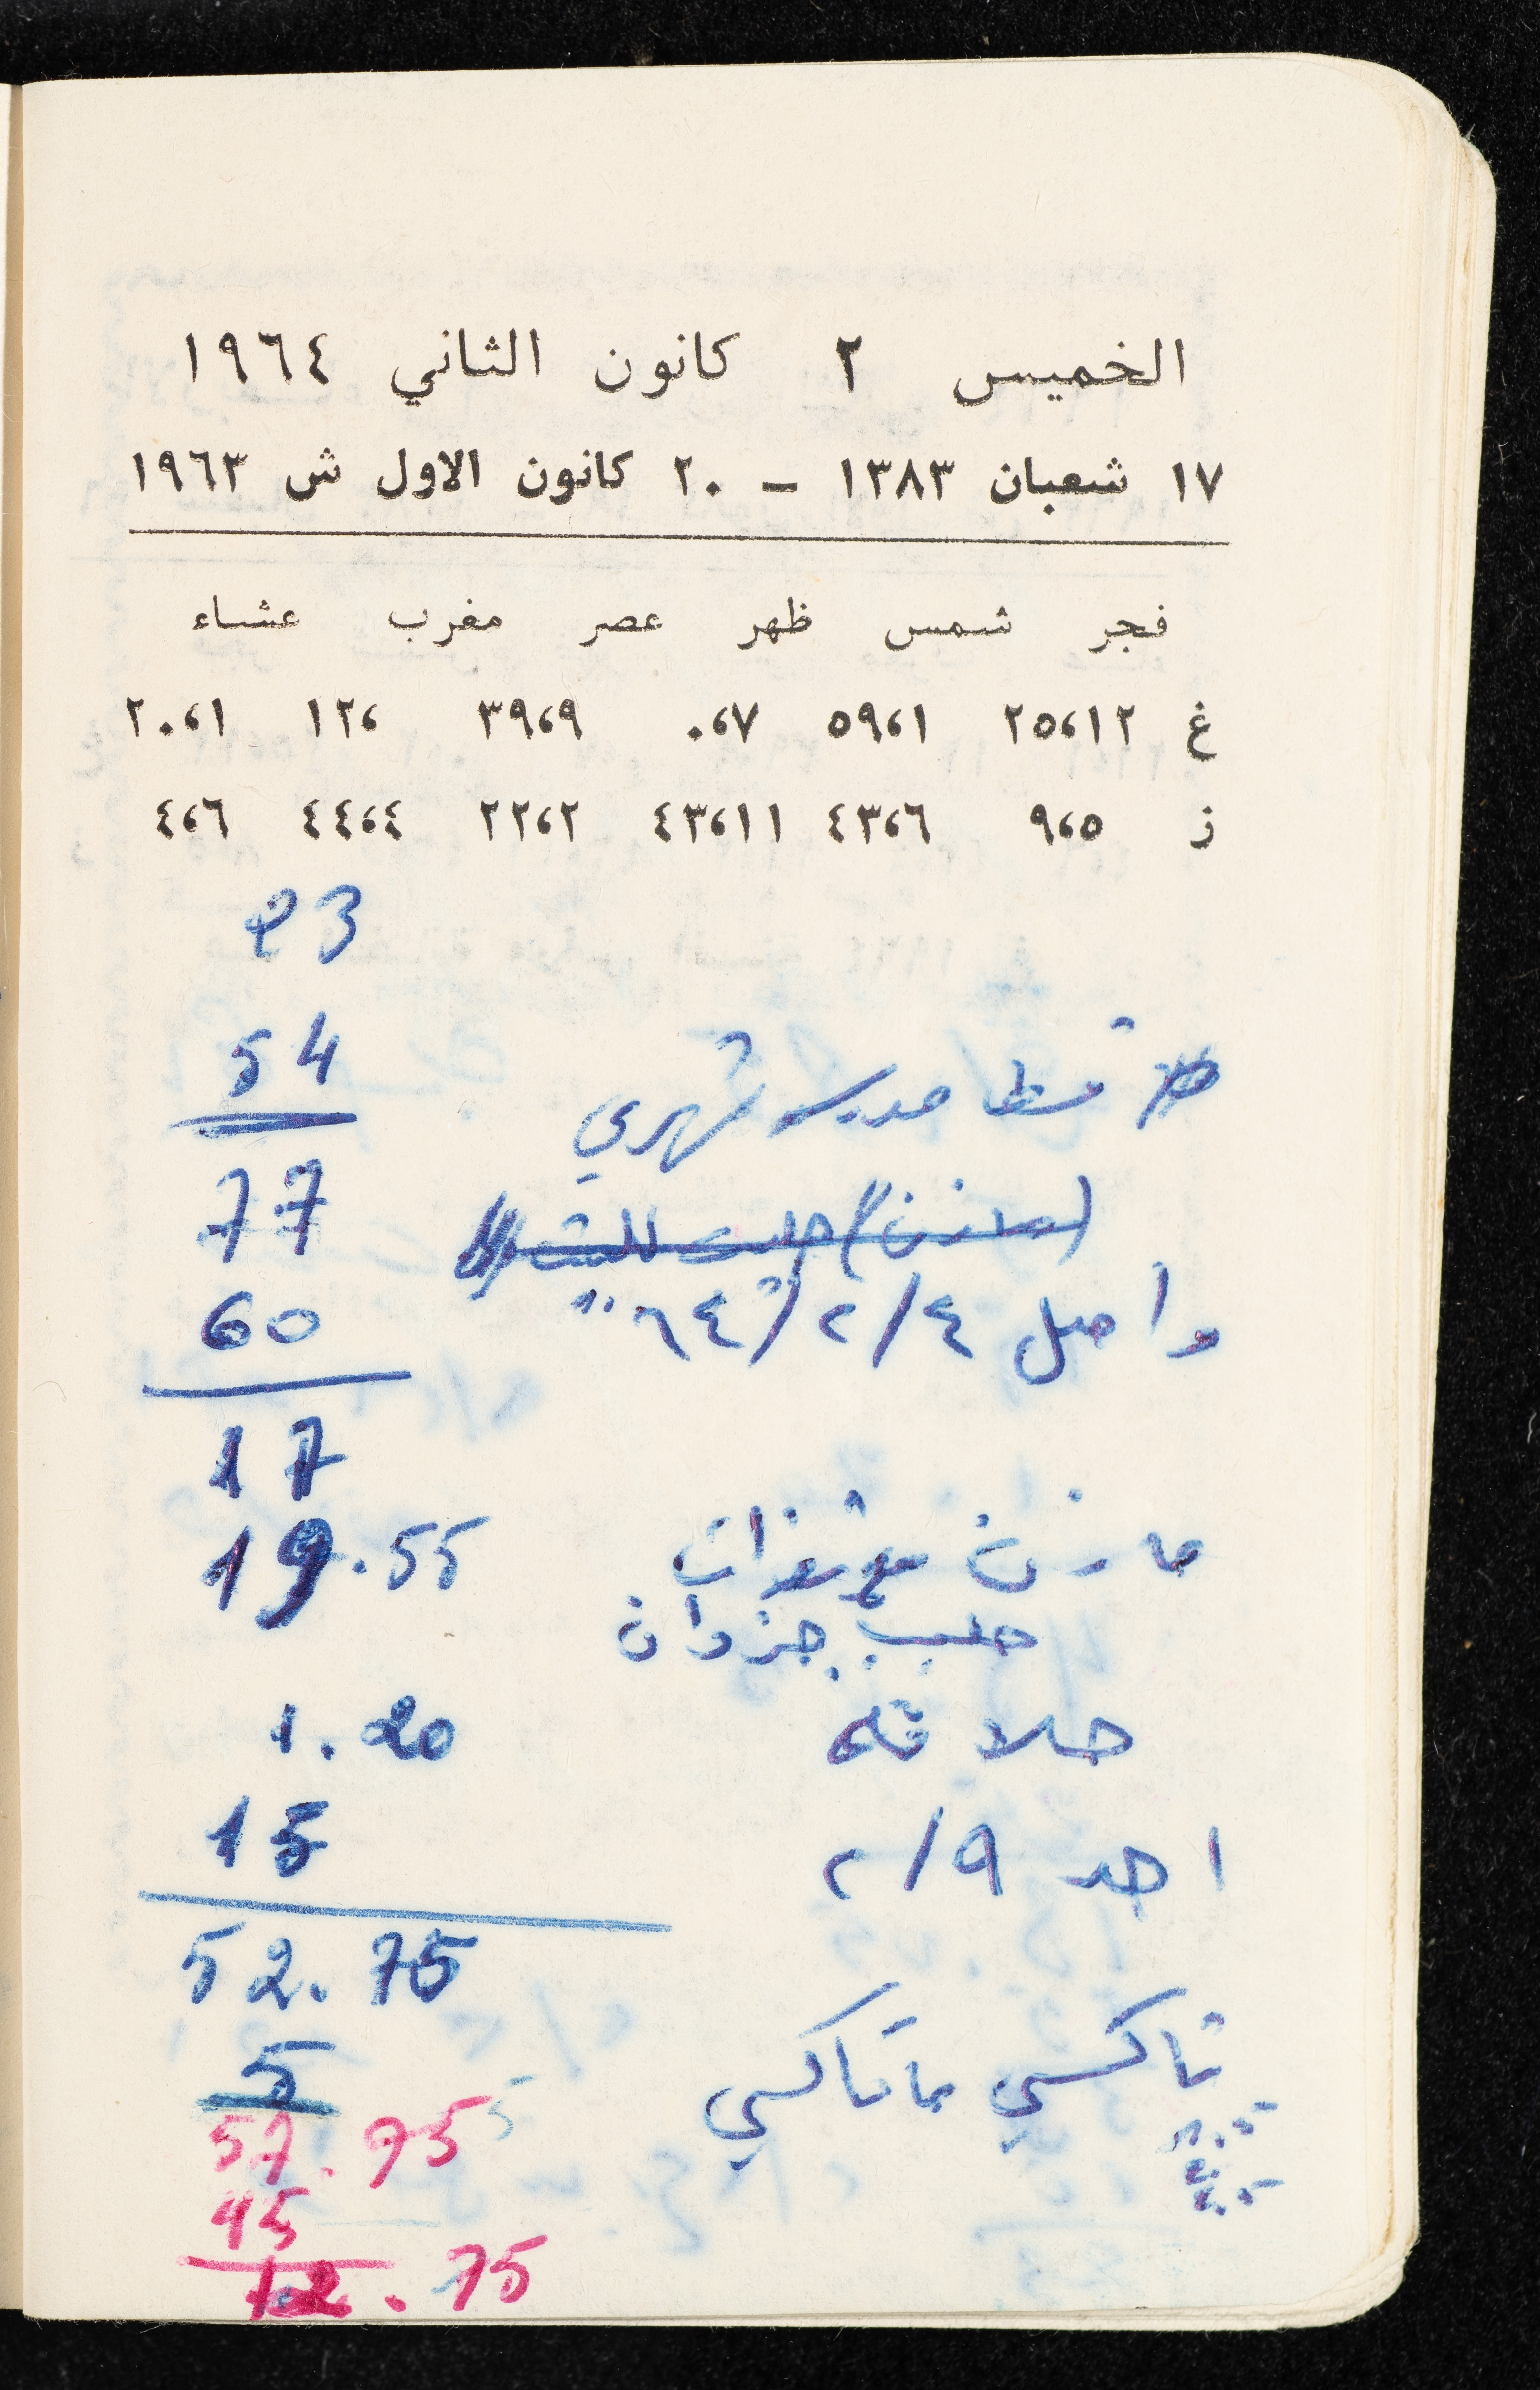 الخميس ٢ كانون الثاني ١٩٦٤
١٧ شعبان ١٣٨٣ – ٢٠ كانون الاول ش ١٩٦٣
فجر شمس ظهر عصر مغرب عشاء
غ ٢٥،١٢ ٥٩،١ ٠،٧ ٣٩،٩ ١٢، ٢٠،١
ز ٩،٥ ٤٣،٦ ٤٣،١١ ٢٢،٢ ٤٤،٤ ٤،٦
23
شهري 54
77
واصل ٤/٢/٦٤ 60
17
مازن 19.55
حليب جزدان
حلاقه 1.20
احد ٩/٢ 15
52.75
تاكسي ماتاكسي 5
57.75
45
12.75